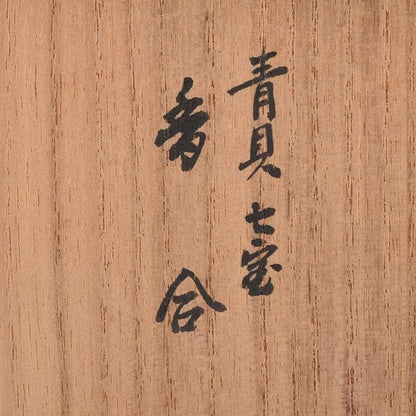 青貝七宝
香合